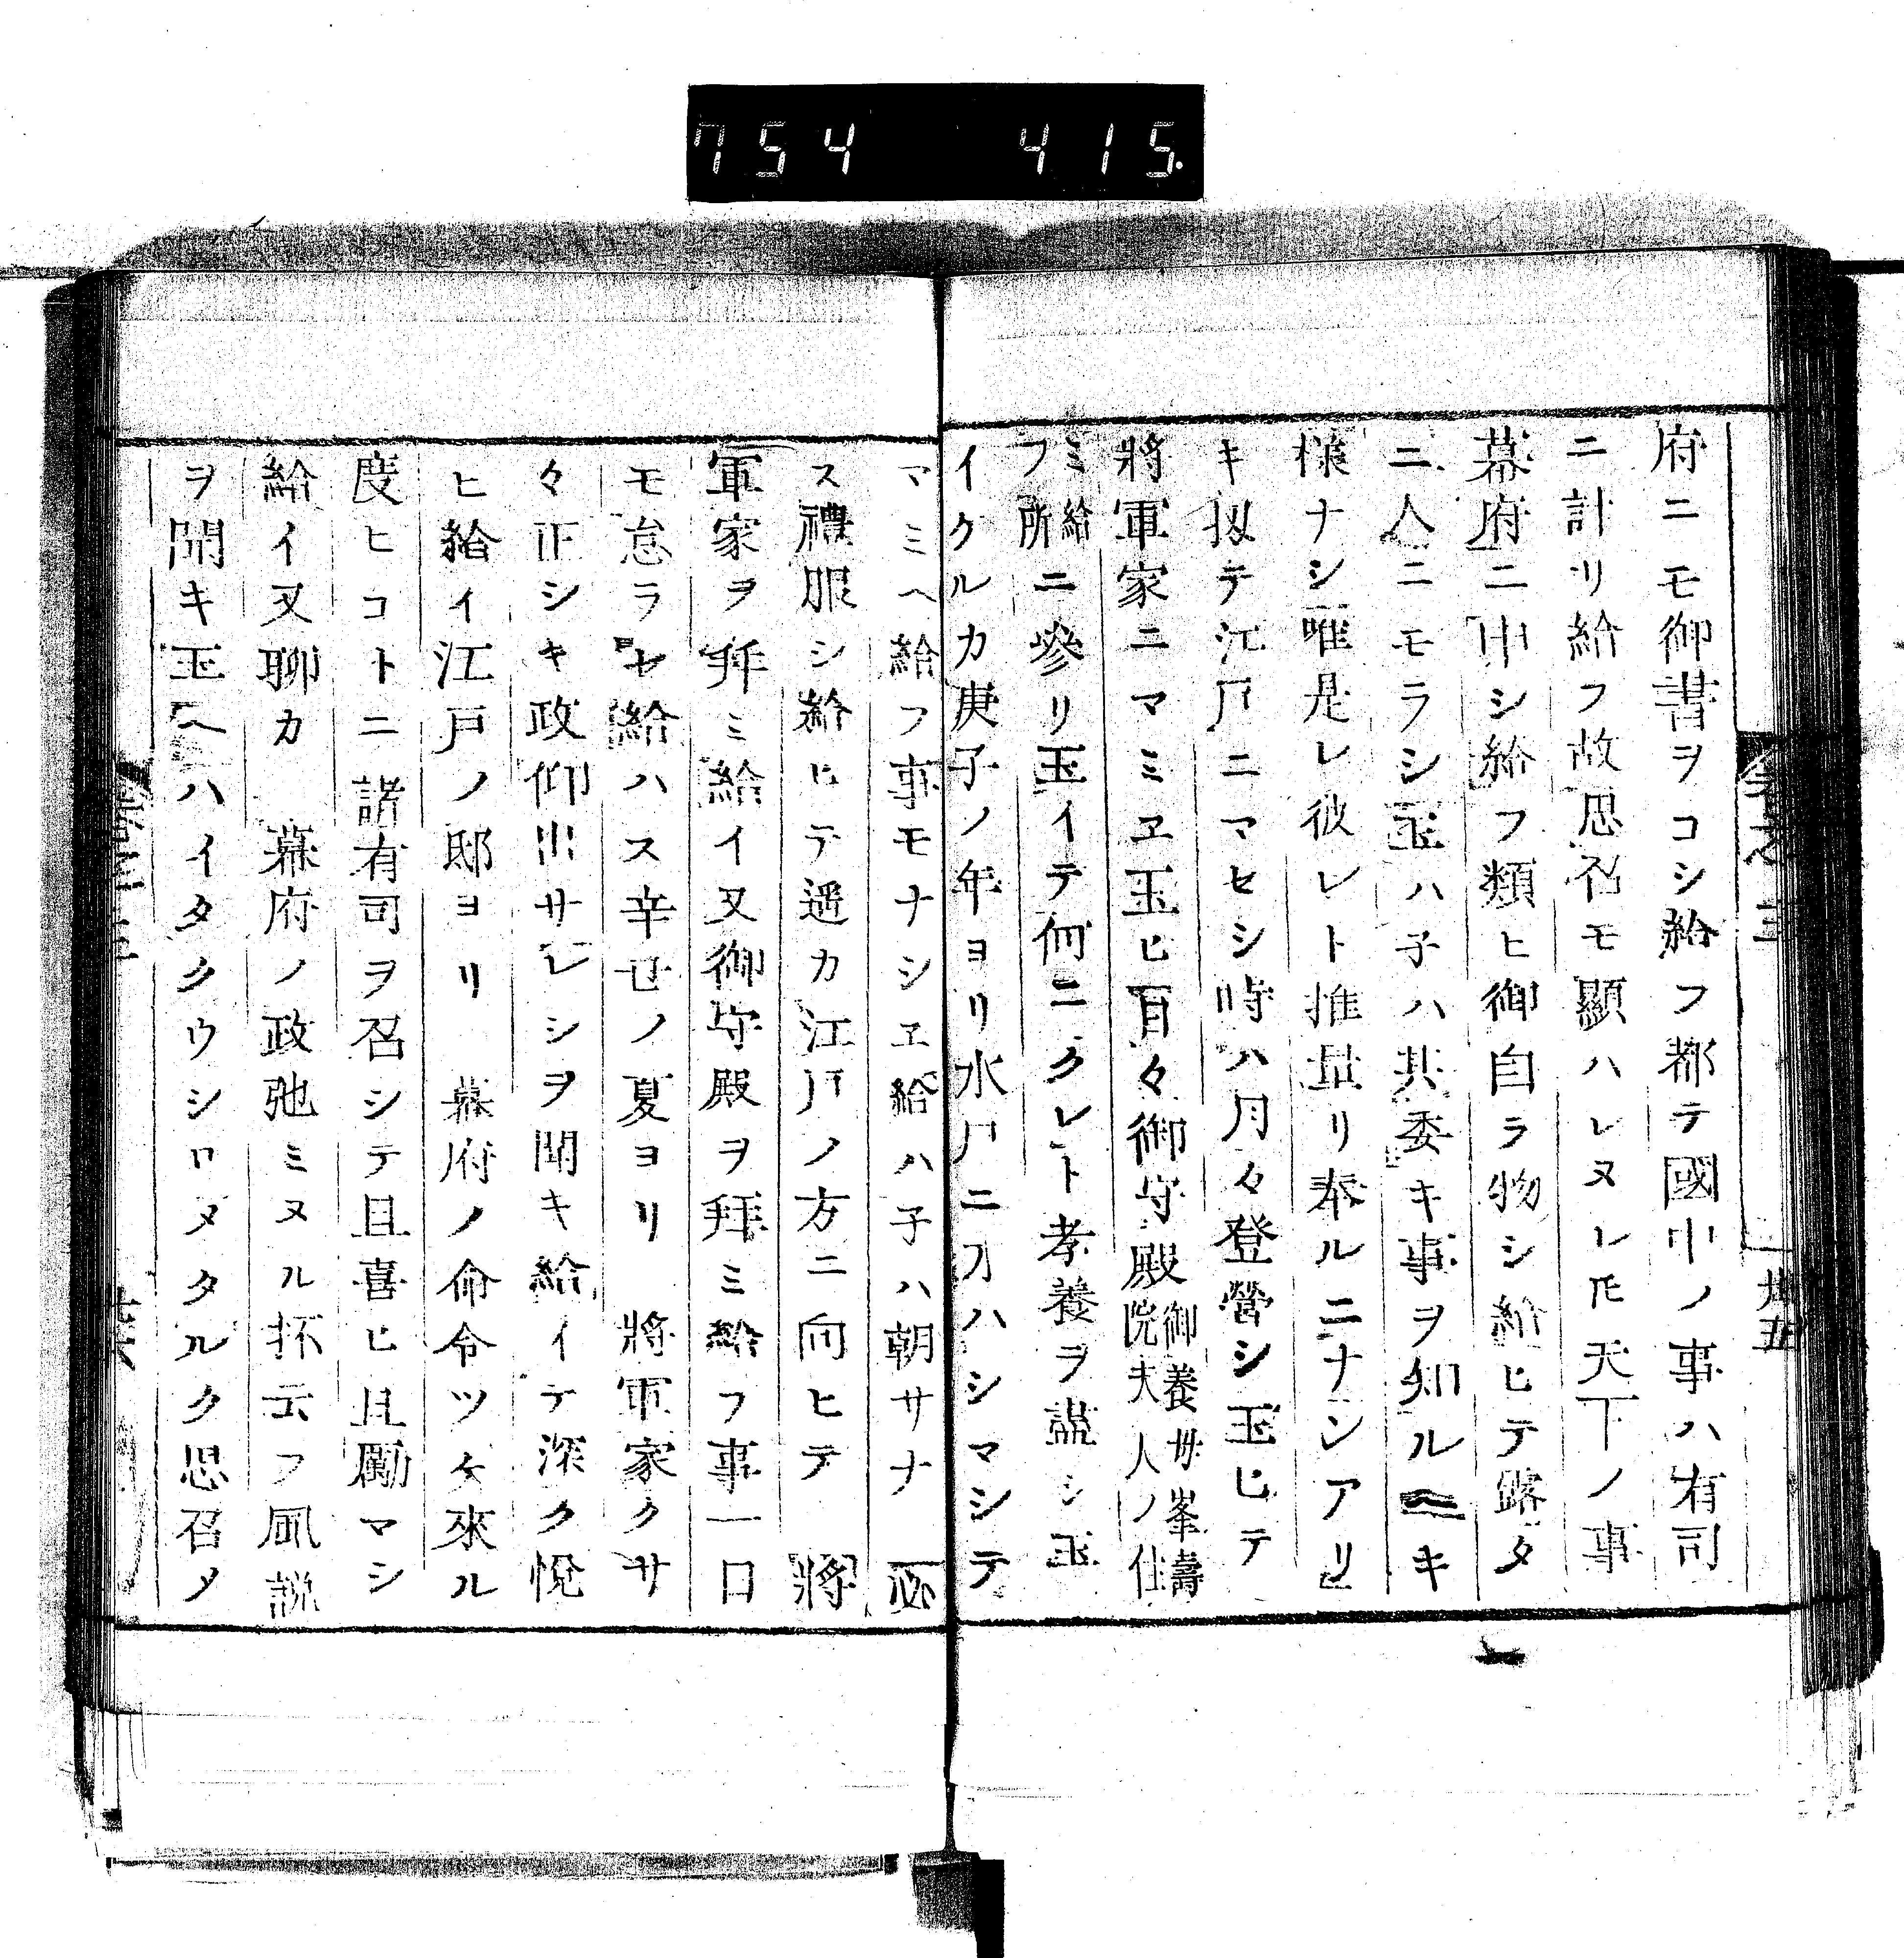 754 415.
府ニモ御書ヲコシ給フ都テ國中ノ事ハ有司
ニ計リ給フ故思召モ顯ハレヌレ𪜈天下ノ事
幕府ニ申シ給フ類ヒ御自ラ物シ給ヒテ露タ
ニ人ニモラシ玉ハ子ハ其委キ事ヲ知ルヘキ
樣ナシ唯是レ彼レト推量リ奉ルニナンアリ
キ扨テ江戸ニマセシ時ハ月々登營シ玉ヒテ
將軍家ニマミヱ玉ヒ百々御守殿
御養母峯壽
院夫人ノ住
ミ給
フ所
ニ參リ玉イテ何ニクレト孝養ヲ盡シ玉
イクルカ庚子ノ年ヨリ水戸ニオハシマシテ
マミヘ給フ事モナシヱ給ハ子ハ朝サナ 必
ス禮服シ給ヒテ遥カ江戸ノ方ニ向ヒテ 將
軍家ヲ拜ミ給イ又御守殿ヲ拜ミ給フ事一日
モ怠ラセ給ハス辛丑ノ夏ヨリ 將軍家クサ
々正シキ政仰出サレシヲ聞キ給イテ深ク悅
ヒ給イ江戸ノ邸ヨリ 幕府ノ命令ツケ來ル
度ヒコトニ諸有司ヲ召シテ且喜ヒ且勵マシ
給イ又聊カ 幕府ノ政弛ミヌル抔云フ風説
ヲ聞キ玉ヘハイタクウシロメタルク思召メ
廿五